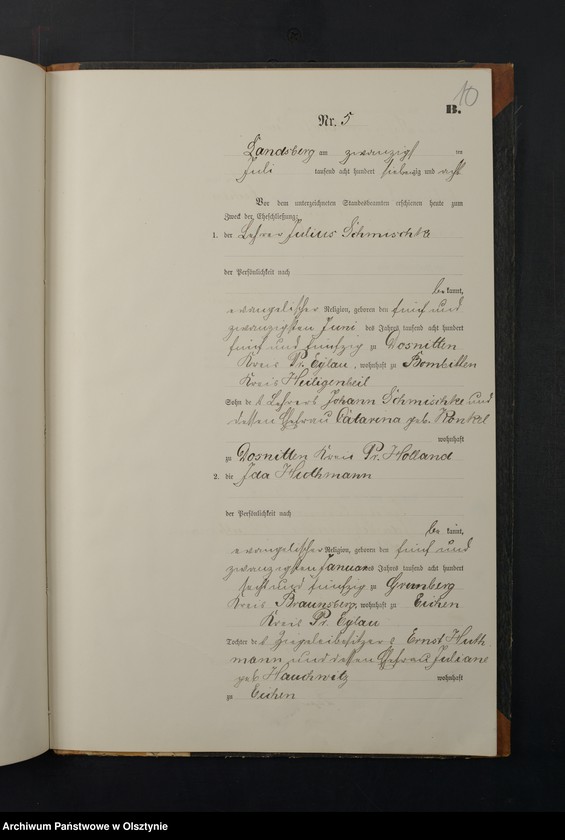 10
B.
Nr. 5
Landsberg am zwanzigsten
Juli tausend acht hundert siebenzig und acht
Vor dem unterzeichneten Standesbeamten erschienen heute zum
Zweck der Eheschließung:
1. der Lehrer Julius Schmischke
der Persönlichkeit nach
bekannt,
evangelischer Religion, geboren den fünf und
zwanzigsten Juni des Jahres tausend acht hundert
fünf und fünfzig zu Dosnitten
Kreis Pr. Eylau, wohnhaft zu Bombitten
Kreis Heiligenbeil
Sohn des Lehrers Johann Schmischke und
dessen Ehefrau Catarena geb.
wohnhaft
zu Dosnitten Kreis Pr. Holland
2. die Ida Huthmann
der Persönlichkeit nach
bekannt,
evangelischer Religion, geboren den fünf und
zwanzigsten Januar des Jahres tausend acht hundert
sechs und fünfzig zu Grunberg
Kreis Braunsberg, wohnhaft zu Eichen
Kreis Pr. Eylau
Tochter des Ziegeleibesitzers Ernst Huth
mann und dessen Ehefrau Juliane
geb. Hauschwitz wohnhaft
zu Eichen
Archiwum Państwowe w Olsztynie